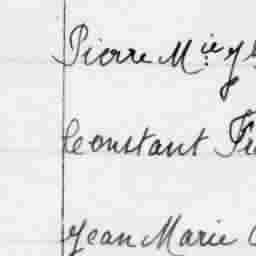 Pierre M.ie
Constant
Jean Marie